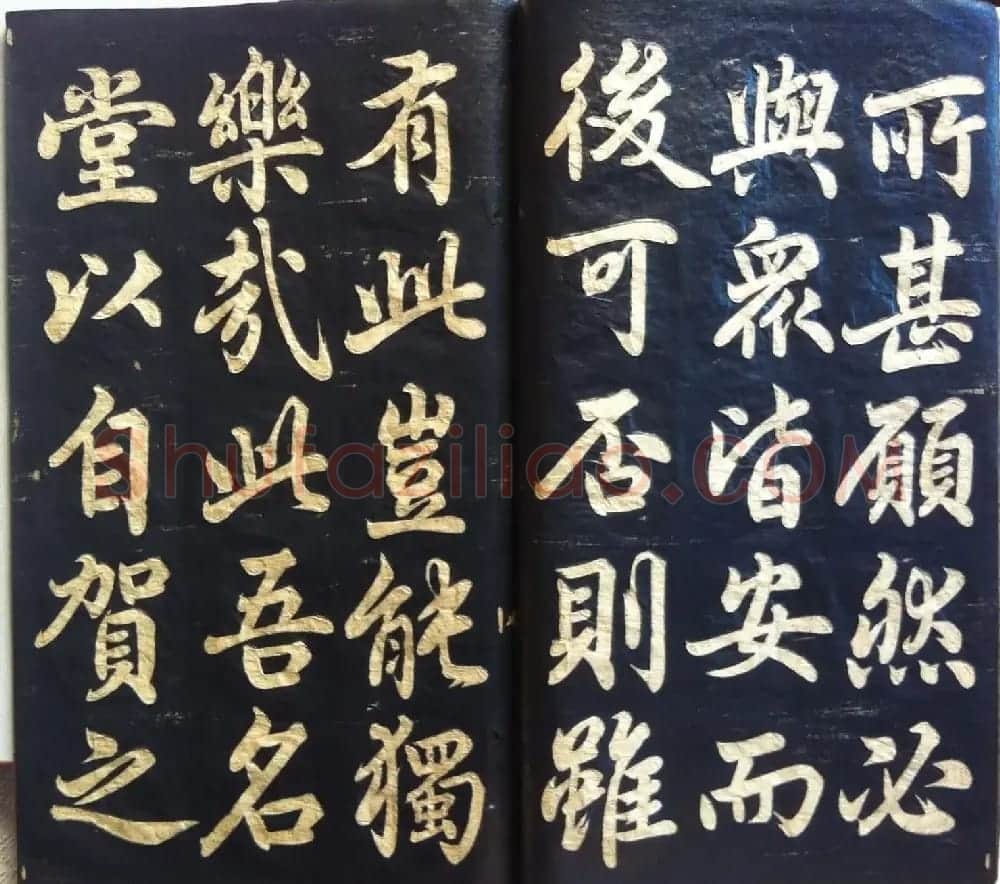 所甚願然必
與眾皆安而
後可否則雖
有此豈能獨
樂哉此吾名
堂以自賀之
Shufaziliao.COM